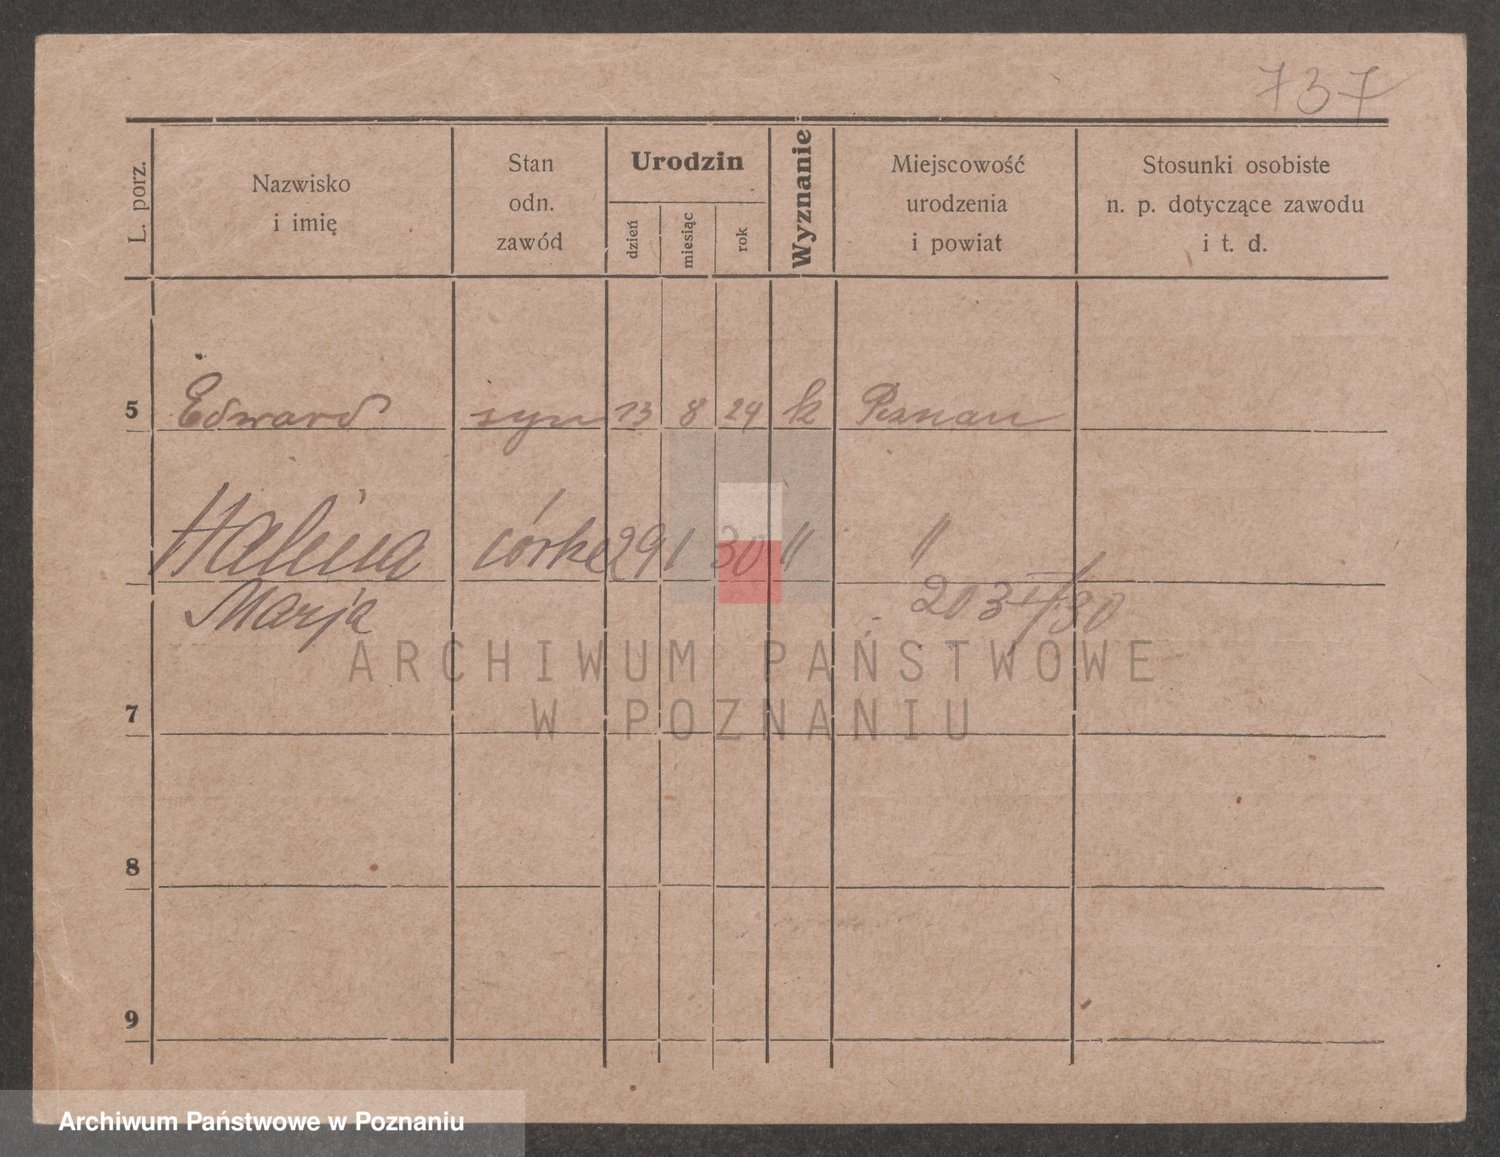 737
L. porz.
Nazwisko
i imię
Stan
odn.
zawód
Urodzin
dzień
miesiąc
rok
Wyznanie
Miejscowość
urodzenia
i powiat
Stosunki osobiste
n. p. dotyczące zawodu
i t. d.
5 Edward syn 13 8 29 k Poznan
Halina córka 29 1 30 " "
Marja 203
ARCHIWUM PAŃSTWOWE
W POZNANIU
7
8
9
Archiwum Państwowe w Poznaniu